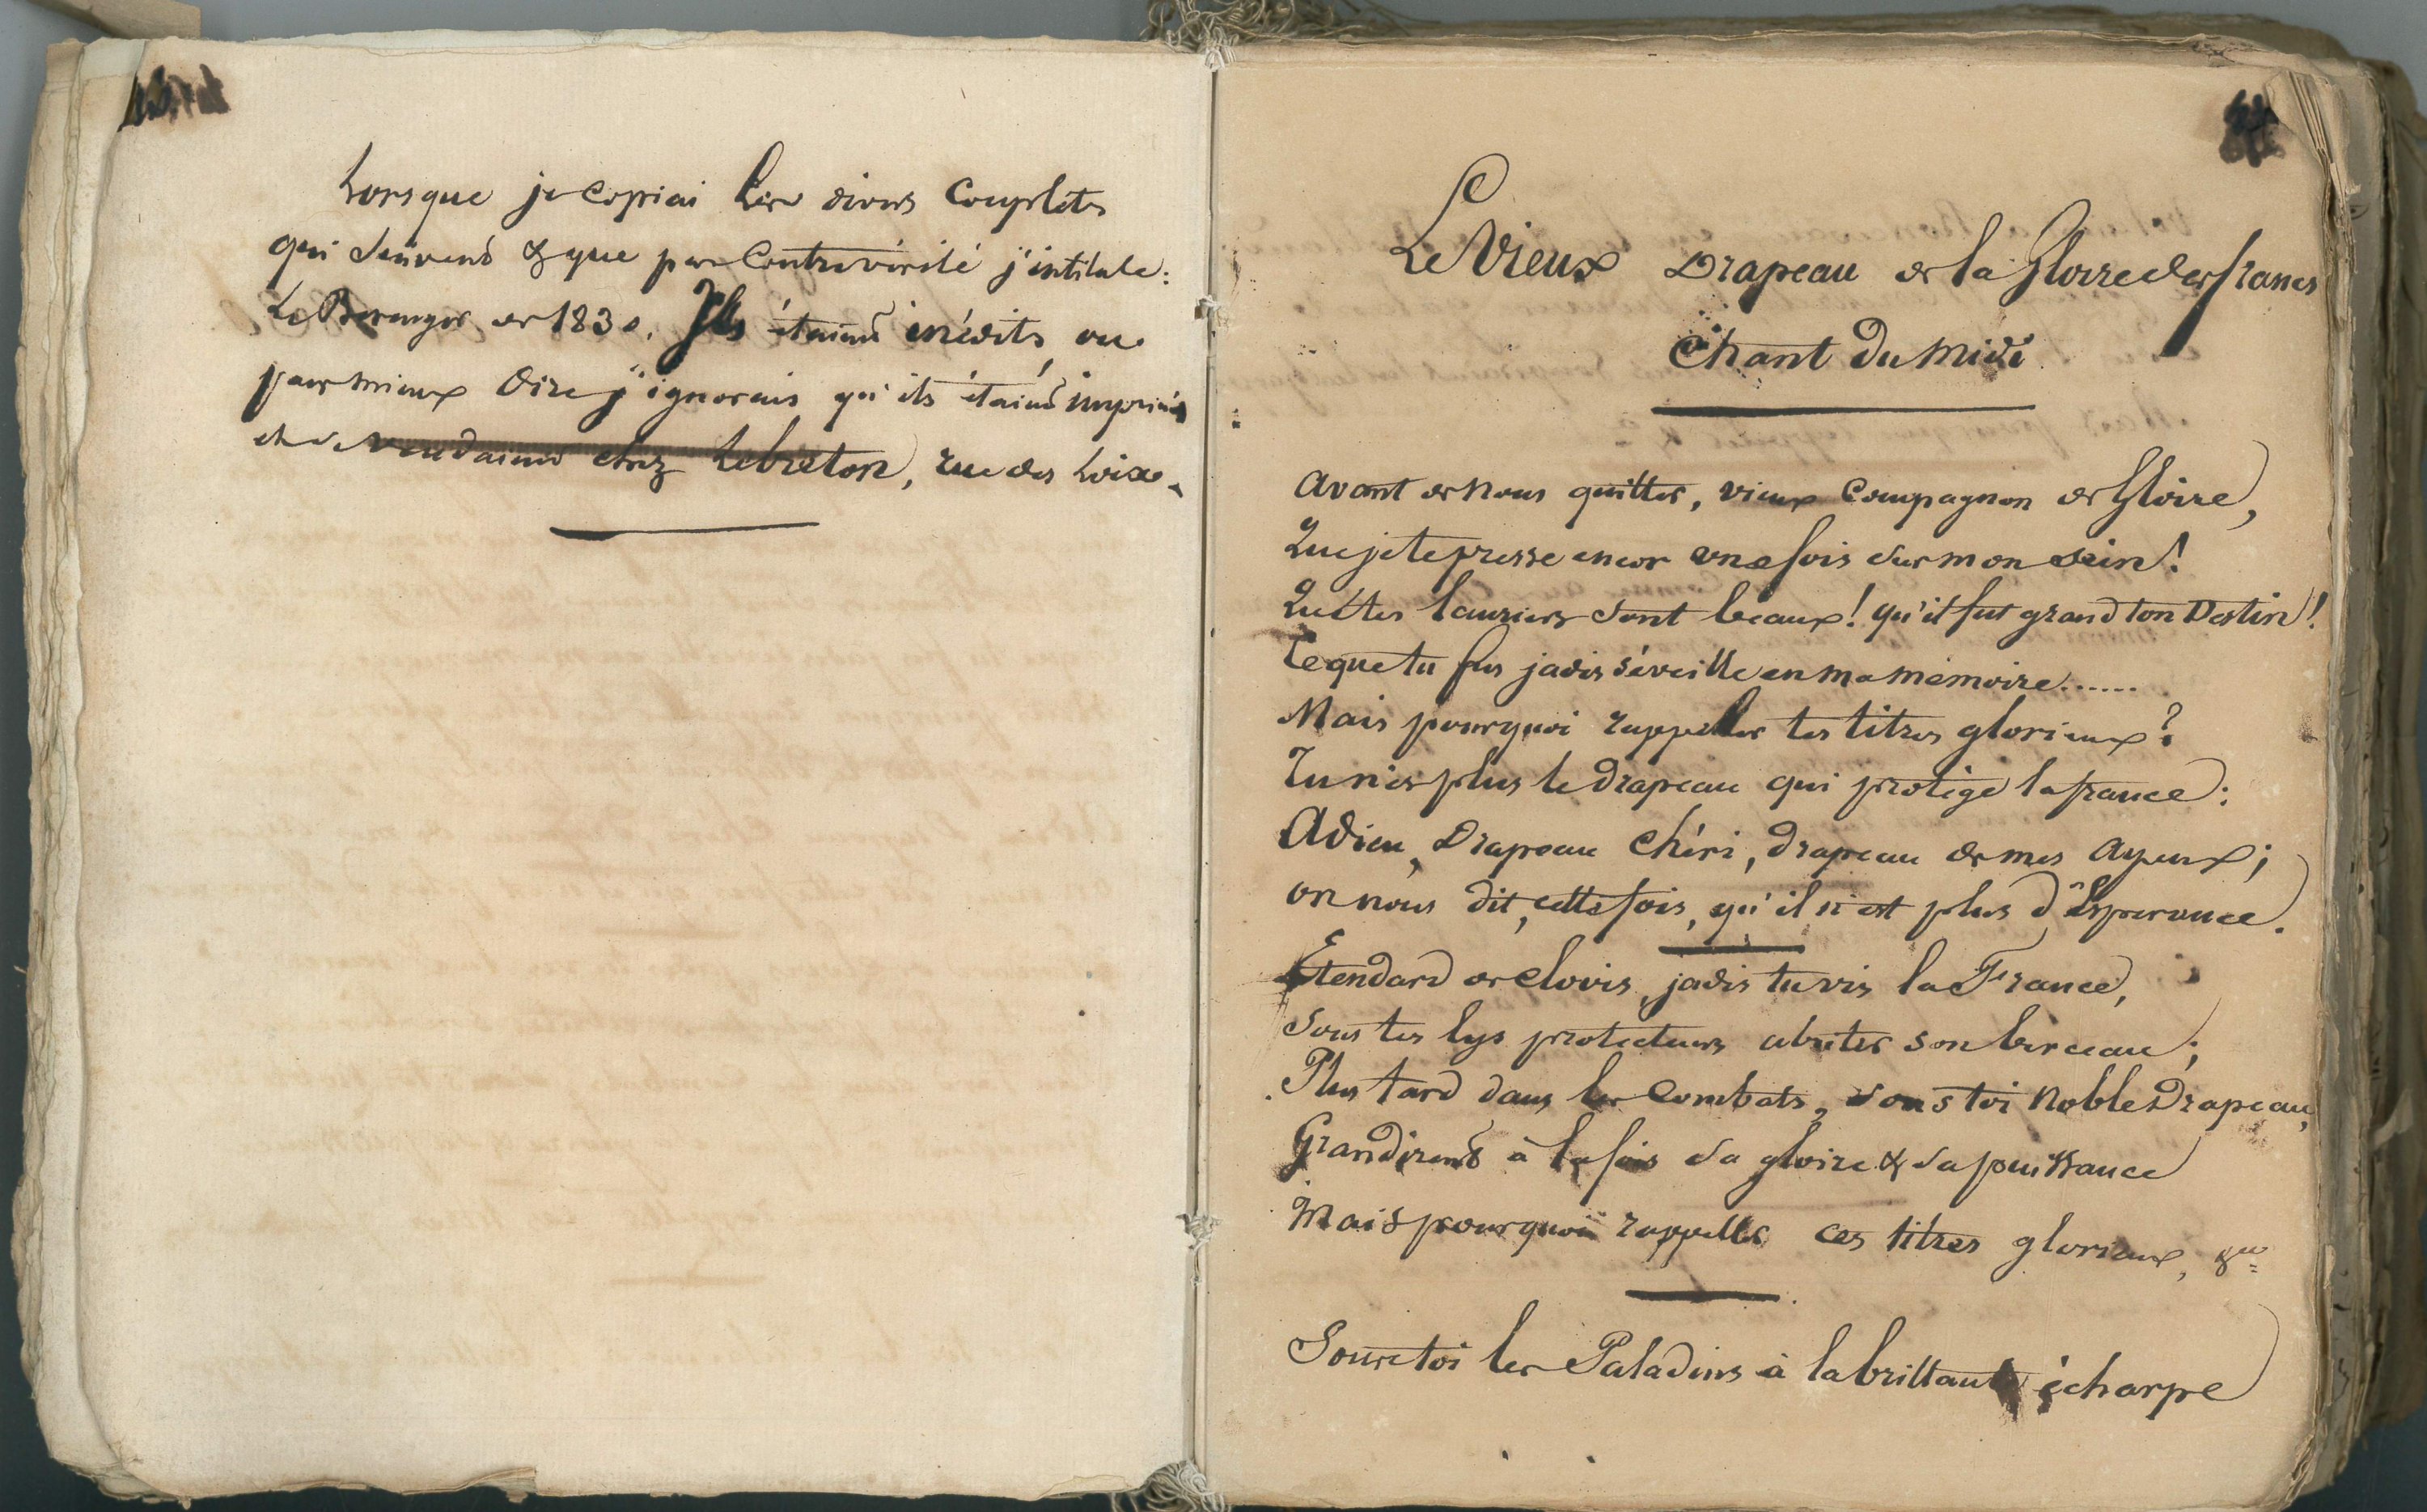 Lorsque je copiai les divers Couplets
qui suivent & que par Contrevérité j'intitule:
Le Beranger de 1830. Ils étaient inédits, ou
pour mieux dire j'ignorais qu'ils étaient imprimés
et se vendaient chez Lebreton, rue des Loix.
Le Vieux Drapeau de la Gloire des francs
Chant du Midi
Avant de nous quitter, vieux Compagnon de Gloire,
Que je te presse encor une fois sur mon sein!
Que tes lauriers sont beaux! qu'il fut grand ton Destin!
Ce que tu fus jadis s'éveille en ma mémoire......
Mais pourquoi rappeller tes titres glorieux?
Tu n'es plus le drapeau qui protège la france:
Adieu, Drapeau Chéri, drapeau de mes ayeux;
on nous dit, cette fois, qu'il n'est plus d'Esperance.
Etendard de Clovis, jadis tu vis la France,
Sous tes lys protecteurs abriter son berceau;
Plus tard dans les Combats, sous toi Noble Drapeau,
Grandirent à la fois sa gloire & sa puissance
Mais pourquoi rappeller ces titres glorieux, &ca
Sous toi les Paladins à la brillante écharpe